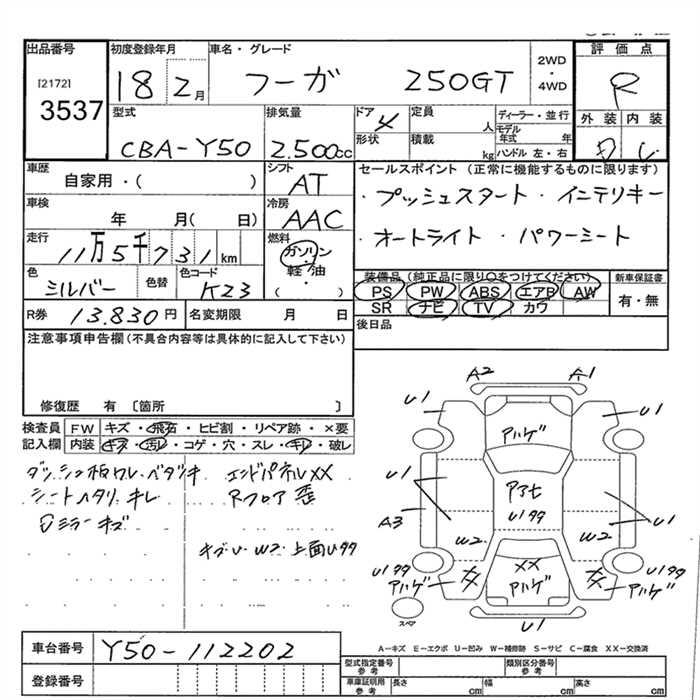 出品番号 初度登録年月 車名・グレード 2WD・4WD 評価点
[2172] 3537
18 2月 フーガ 250GT R
型式 排気量 ドア 4 定員 人 ディーラー・並行 外装 内装
CBA-Y50 2.500cc 形状 積載 kg モデル年式 年 ハンドル 左・右
車歴 シフト セールスポイント (正常に機能するものに限ります)
自家用・( ) AT
・プッシュスタート ・インテリキー
車検 冷房
年 月( 日) AAC
・オートライト ・パワーシート
走行 燃料
11万5千731km ガソリン・軽油 ( )
色 色替 色コード 装備品 (純正品に限り○をつけてください) 新車保証書
シルバー K23 PS PW ABS エアB AW 有・無
SR ナビ TV カワ
R券 13.830円 名変期限 月 日 後日品
注意事項申告欄(不具合内容等は具体的に記入して下さい)
修復歴 有 〔箇所 〕
検査員記入欄 FW キズ・飛石・ヒビ割・リペア跡・×要
内装 キズ・汚レ・コゲ・穴・スレ・キレ・破レ
ダッシュ板ワレ・ベタツキ エンドパネルXX
シートヘタリ キレ Rフロア 歪
ミラーキズ
W2 上面Uササ
A2 A1
U1 U1
アハゲ
U1 U1
A3 W2 W2
U1ササ
XX
アハゲ アハゲ アハゲ
U1ササ U1ササ
スペア U1
A-キズ E-エクボ U-凹み W-補修跡 S-サビ C-腐食 XX-交換済
車台番号 Y50-112202
型式指定番号 参考 類別区分番号 参考
登録番号 車庫証明用 参考 長さ cm 幅 cm 高さ cm